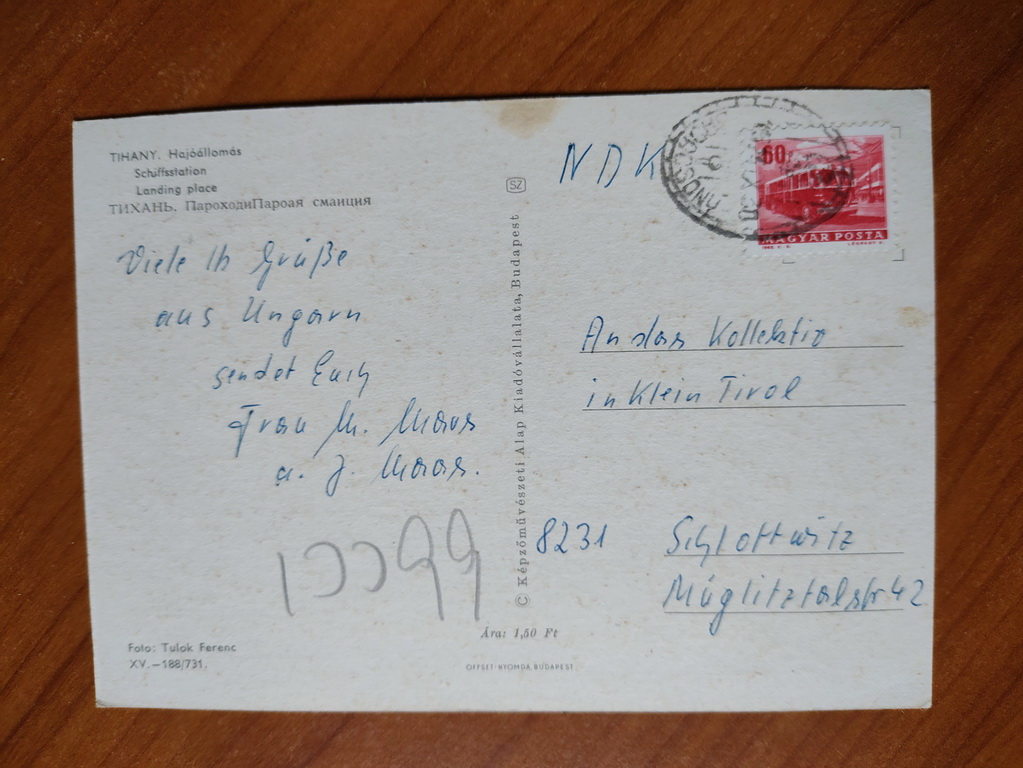 TIHANY. Hajóállomás
Schiffsstation
Landing place
ТИХАНЬ. ПароходиПароая смаиция
Viele lb Grüße
aus Ungarn
sendet Euch
Frau M. Maas
u. J. Maas.
Foto: Tulok Ferenc
XV.–188/731.
SZ
© Képzőművészeti Alap Kiadóvállalata, Budapest
Ára: 1,50 Ft
OFFSET-NYOMDA BUDAPEST
NDK
60f
MAGYAR POSTA
An das Kollektiv
in Klein Tirol
8231 Schlottwitz
Müglitztalstr 42